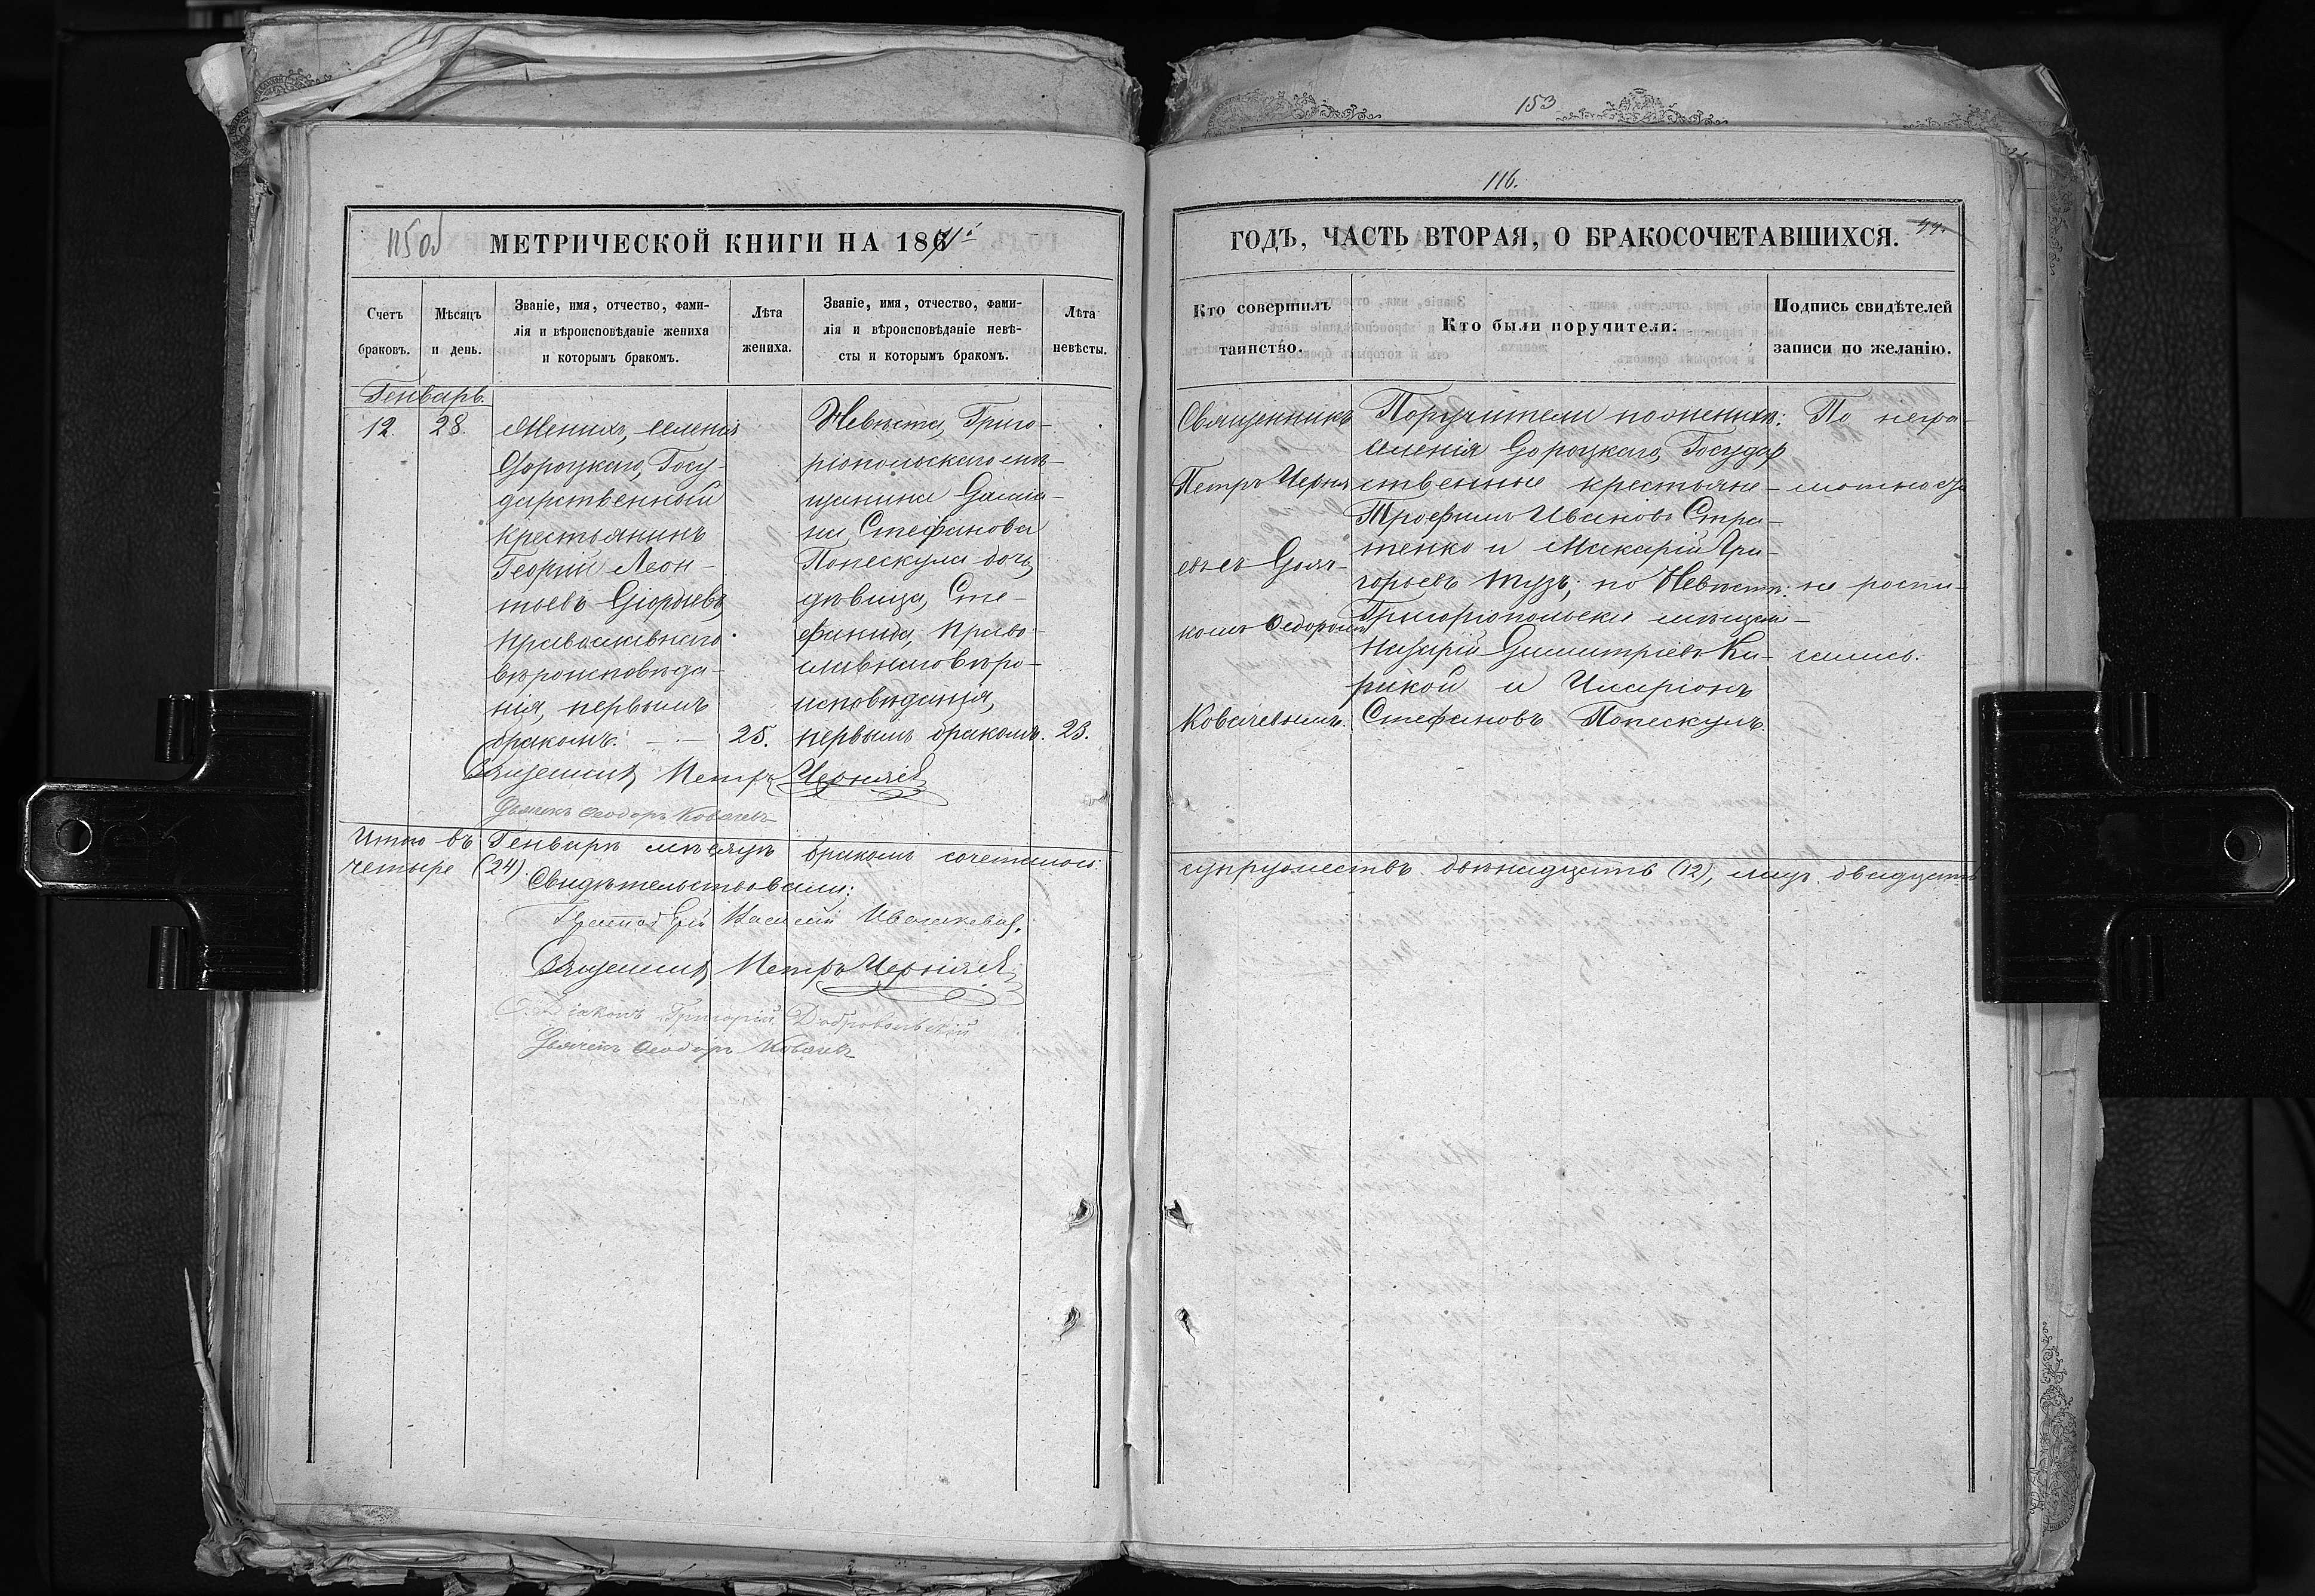 153
116.
115 об
МЕТРИЧЕСКОЙ КНИГИ НА 1871й
Счетъ браковъ.
Мѣсяцъ и день.
Званіе, имя, отчество, фами-
лія и вѣроисповѣданіе жениха
и которымъ бракомъ.
Лѣта жениха.
Званіе, имя, отчество, фами-
лія и вѣроисповѣданіе невѣ-
сты и которымъ бракомъ.
Лѣта невѣсты.
Генварь.
12. 28.
Женихъ, селенія
Дороцкаго, Госу-
дарственный
крестьянинъ
Георгій Леон-
тьевъ
православнаго
вѣроисповѣда-
нія, первымъ
бракомъ. — 25.
Невѣста, Григо-
ріопольскаго мѣ-
щанина Даміа-
на Стефанова
Попескула дочь,
дѣвица, Сте-
фанида, право-
славнаго вѣро-
исповѣданія,
первымъ бракомъ. 23.
Священникъ Петръ Черняевъ
Дьячекъ Ѳеодоръ Ковачевъ
Итого въ Генварѣ мѣсяцѣ бракомъ сочеталось
четыре (24).
Свидѣтельствовали:
Василій
Священникъ Петръ Черняевъ
Діаконъ Григорій Добровольскій
Дьячекъ Ѳеодоръ Ковачевъ
ГОДЪ, ЧАСТЬ ВТОРАЯ, О БРАКОСОЧЕТАВШИХСЯ.
Кто совершилъ таинство.
Кто были поручители.
Подпись свидѣтелей
записи по желанію.
Священникъ
Петръ Черня
евъ съ Дьяч-
комъ Ѳедоромъ
Ковачевымъ.
Поручители по женихѣ:
селенія Дороцкаго, Государ
ственные крестьяне-
Трофимъ Ивановъ Стра-
тенко и Макарій Гри-
горьевъ Тузъ; по Невѣстѣ:
Григоріопольскіе мѣщане-
Назарій Димитріевъ Ка-
рикой и Иларіонъ
Стефановъ Попескулъ.
По негра-
мотности
не роспи-
сались.
супружествъ двѣнадцать (12), лицъ двадцать